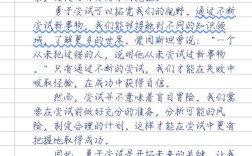 勇于尝试可以拓宽我们的视野。通过不断
尝试新事物,我们能够接触到不同的知识领
域,了解更多的世界。爱因斯坦曾说:"一个
从来没犯过错的人,说明他从来没尝试过新事物。
"只有通过不断的尝试,我们才能在失败中
吸取经验,在成功中获得成长。
然而,尝试并不意味着盲目冒险。我们需
要在尝试前做好充分的准备,分析可能的风
险,制定合理的计划,这样才能在尝试中更有
把握地取得成功。
因此,勇于尝试是开拓未来的关键,让我